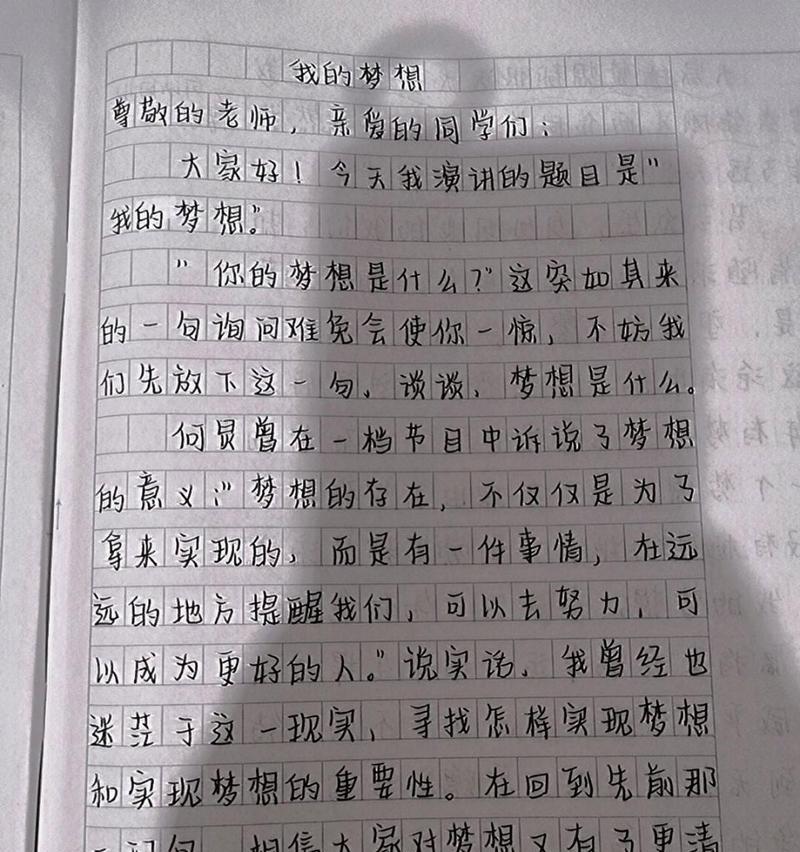 我的梦想
尊敬的老师，亲爱的同学们：
大家好！今天我演讲的题目是"
我的梦想"。
"你的梦想是什么？"这突如其来
的一句询问难免会使你一惊，不妨我
们先放下这一句，谈谈，梦想是什么。
何炅曾在一档节目中诉说了梦想
的意义："梦想的存在，不仅仅是为了
拿来实现的，而是有一件事情，在远
远的地方提醒我们，可以去努力，可
以成为更好的人。"说实话，我曾经也
迷茫于这一现实，寻找怎样实现梦想
和实现梦想的重要性。在回到先前那
相信大家对梦想又有了更清